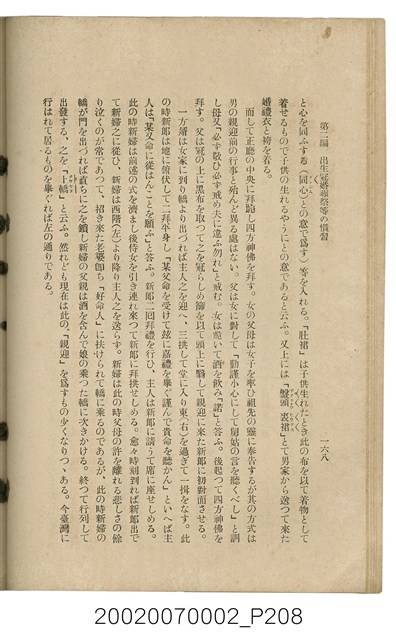 第二編　出生冠婚喪祭等の慣習
一六八
と心を同ふする（同心）との意で爲す）等を入れる。「肚裙」は子供生れたとき此の布を以て着物として
着せるもので子供の生れるやうにとの意であると云ふ。又上には「盤頭裘裙」とて男家から送つて來た
婚禮衣と袴を着る。
而して正廳の中央に拜跪し四方神佛を拜す。女の父母は女子を率ひ祖先の靈に奉告するが其の方式は
男の親迎前の行事と殆んど異る處はない。父は女に對して「勤謹小心にして舅姑の言を聽くべし」と訓
し母又「必ず敬ひ必ず戒め夫に違ふ勿れ」と戒む。女は跪いて酒を飮み「諾」と答ふ。後起つて四方神佛を
拜す。父は冠の上に黑布を取つて之を冠らしめ篩を以て頭上に翳して親迎に來た新郞に初對面させる。
一方婿は女家に到り轎より出づれば主人之を迎へ、三拱して堂に入り東（右）を過ぎて一揖をなす。此
の時新郞は地に俯伏して二拜半身し「某父命を受けて玆に嘉禮を擧ぐ謹んで貴命を聽かん」といへば主
人は「某又命に從はんことを願ふ」と答ふ。新郞二回拜禮を行ひ、主人は新郞に請うて席に座せしめる。
此の時新婦は前述の式を濟まし後侍女を引き連れ來つて新郞に拜拱せしめる。愈々時刻到れば新郞出で
て新婦之に從ひ、新婦は西階（左）より降り主人之を送らず。新婦は此の時父母の許を離れる悲しさの餘
り泣くのが常であつて、招き來た老婆卽ち「好命人」に扶けられて轎に乘るのであるが、此の時新婦の
轎が門を出づれば直ちに之を鎖し新婦の父親は酒を含んで娘の乘つた轎に吹きかける。終つて行列して
出發する、之を「上轎」と云ふ。然れども現在は此の、「親迎」を爲すもの少くなりつゝある。今臺灣に
行はれて居るものを擧ぐれば左の通りである。
20020070002_P208